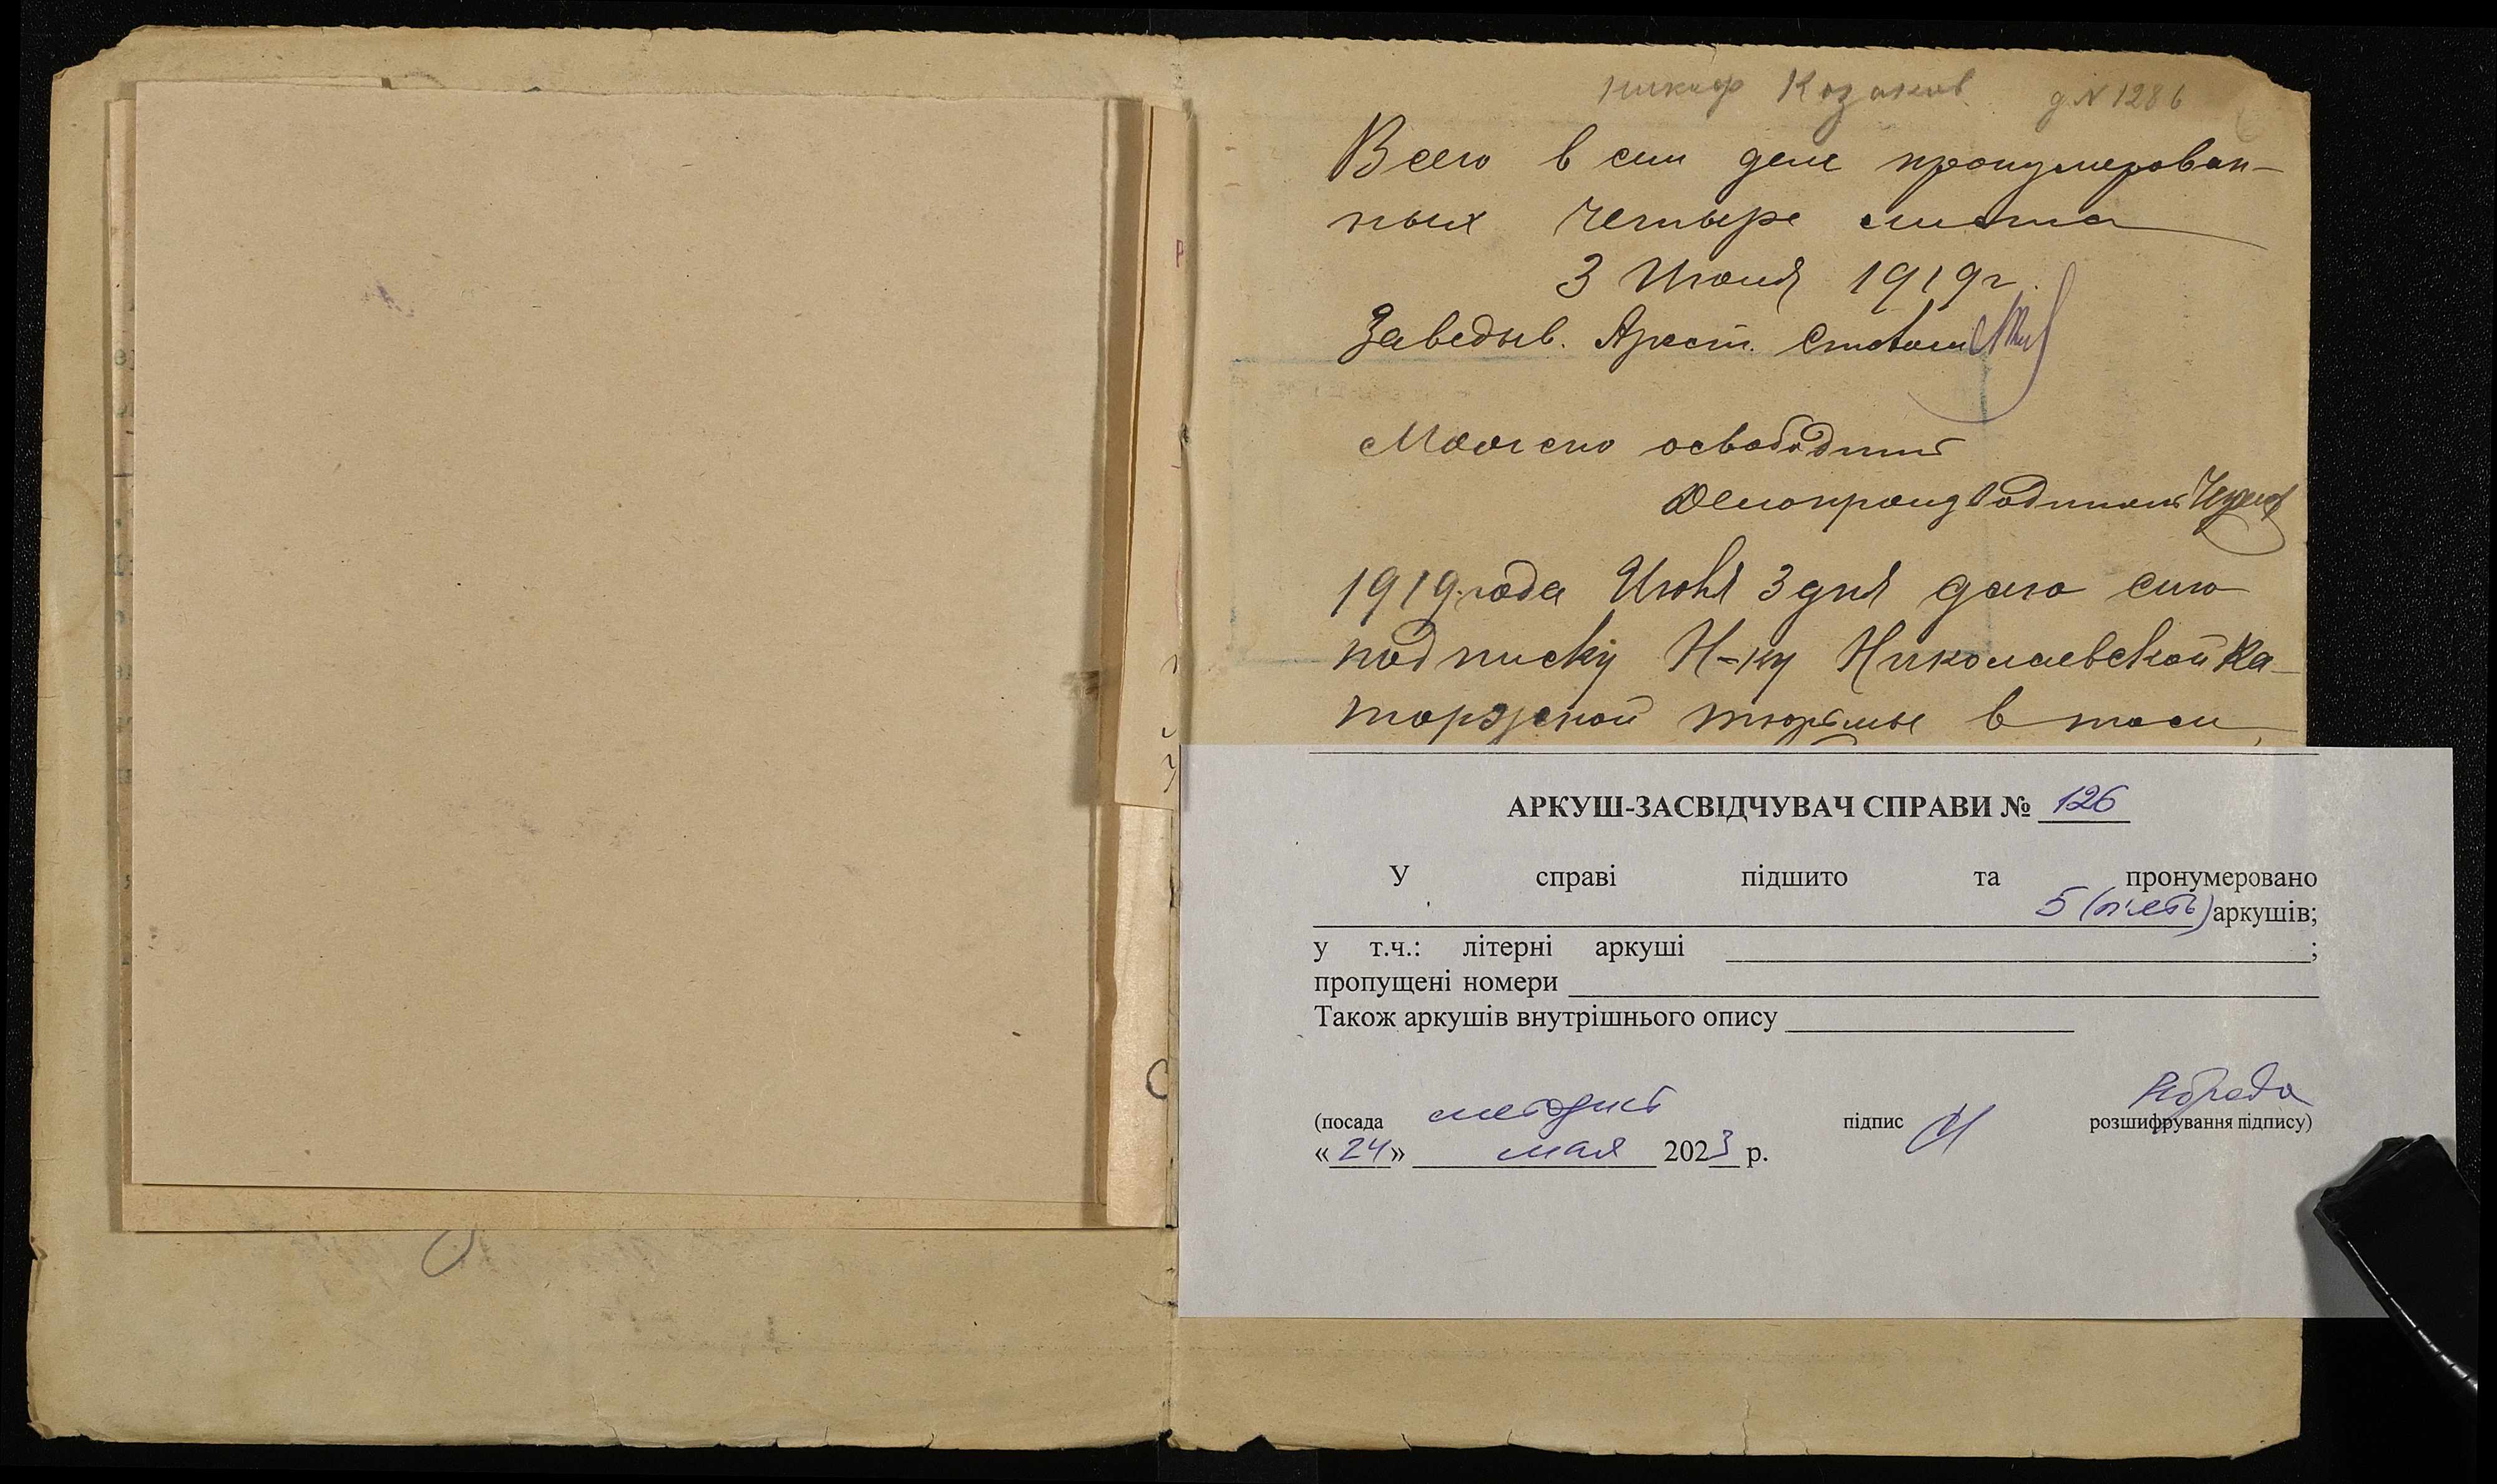 Козаков д № 1286
Всего в сем деле пронумерован-
ных четыре листа
3 Июня 1919 г.
Заведыв. Арест. столом
Можно освободить
Делопроизводитель
1919 года Июня 3 дня даю сию
подписку Н-ку Николаевской Ка-
торжной тюрьмы в том,
АРКУШ-ЗАСВІДЧУВАЧ СПРАВИ № 126
У справі підшито та пронумеровано
5 (п'ять) аркушів;
у т.ч.: літерні аркуші ;
пропущені номери
Також аркушів внутрішнього опису
(посада методист підпис розшифрування підпису)
«24» мая 2023 р.